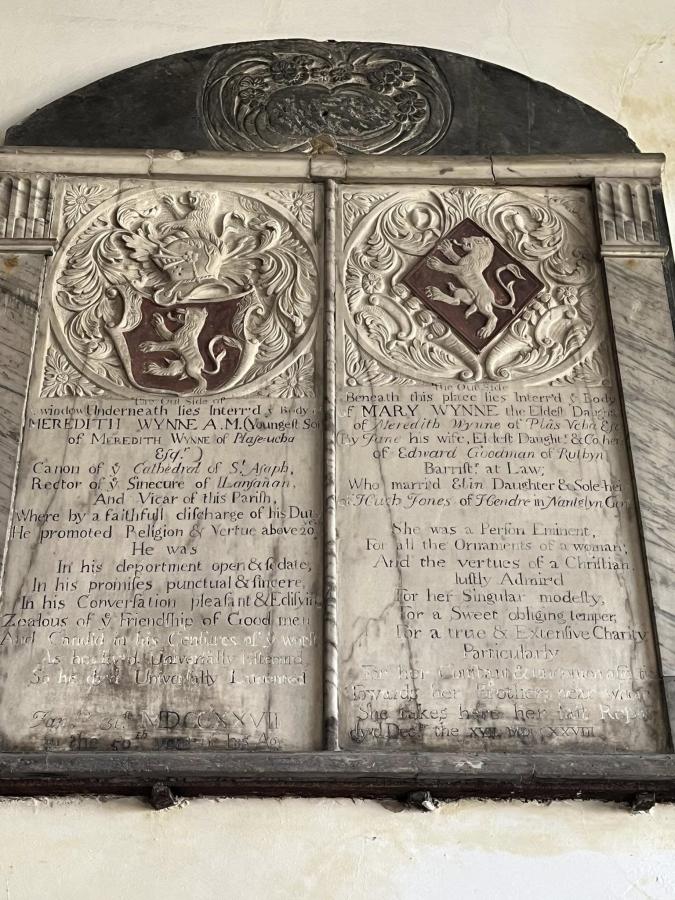 The Out Side of
window Underneath lies Interr'd yͤ Body of
MEREDITH WYNNE A.M. (Youngest Son
of MEREDITH WYNNE of Plase-ucha
Esqʳ.)
Canon of yͤ Cathedral of Sᵗ. Asaph,
Rector of yͤ Sinecure of LLansanan,
And Vicar of this Parish,
Where by a faithfull discharge of his Duty
He promoted Religion & Vertue above 20
He was
In his deportment open & sedate,
In his promises punctual & sincere,
In his Conversation pleasant & Edifying
Zealous of yͤ Friendship of Good men
And Candid in his Censures of yͤ worst
As he liv'd Universally Esteem'd
So he dy'd Universally Lamented
MDCCXXVII
in the 50ᵗʰ year of his Age
The Out Side
Beneath this place lies Interr'd yͤ Body
of MARY WYNNE the Eldest Daught
of Meredith Wynne of Plas Ucha Esq
(By Jane his wife, Eldest Daughtʳ. & Coheir
of Edward Goodman of Ruthyn
Barristʳ. at Law;
Who married Daughter & Sole heir
of Hugh Jones of Hendre in Nantglyn
She was a Person Eminent,
For all the Ornaments of a woman;
And the vertues of a Christian,
Justly Admir'd
For her Singular modesty,
For a Sweet obliging temper,
For a true & Extensive Charity
Particularly
For her Constant & uncommon
Towards her Brothers near whom
She takes here her last Repose
dy'd Decʳ the MDCCXXVIII